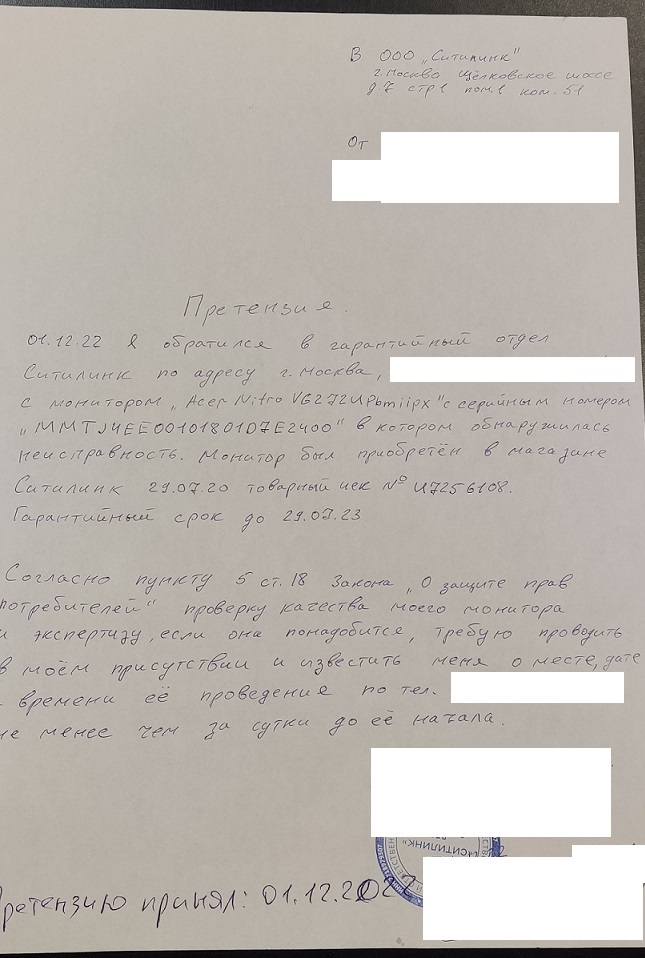 В ООО „Ситилинк"
г.Москва Щёлковское шоссе
д.7 стр1 пом.1 ком. 51
От
Претензия.
01.12.22 я обратился в гарантийный отдел
Ситилинк по адресу г.Москва,
с монитором „Acer Nitro VG272UPbmiipx" с серийным номером
„MMTJ4EE00101801D7E2400" в котором обнаружилась
неисправность. Монитор был приобретён в магазине
Ситилинк 29.07.20 товарный чек № U7256108.
Гарантийный срок до 29.07.23
Согласно пункту 5 ст. 18 Закона „О защите прав
потребителей" проверку качества моего монитора
и экспертизу, если она понадобится, требую проводить
в моём присутствии и известить меня о месте, дате
времени её проведения по тел.
не менее чем за сутки до её начала.
"СИТИЛИНК"
Претензию принял: 01.12.2022